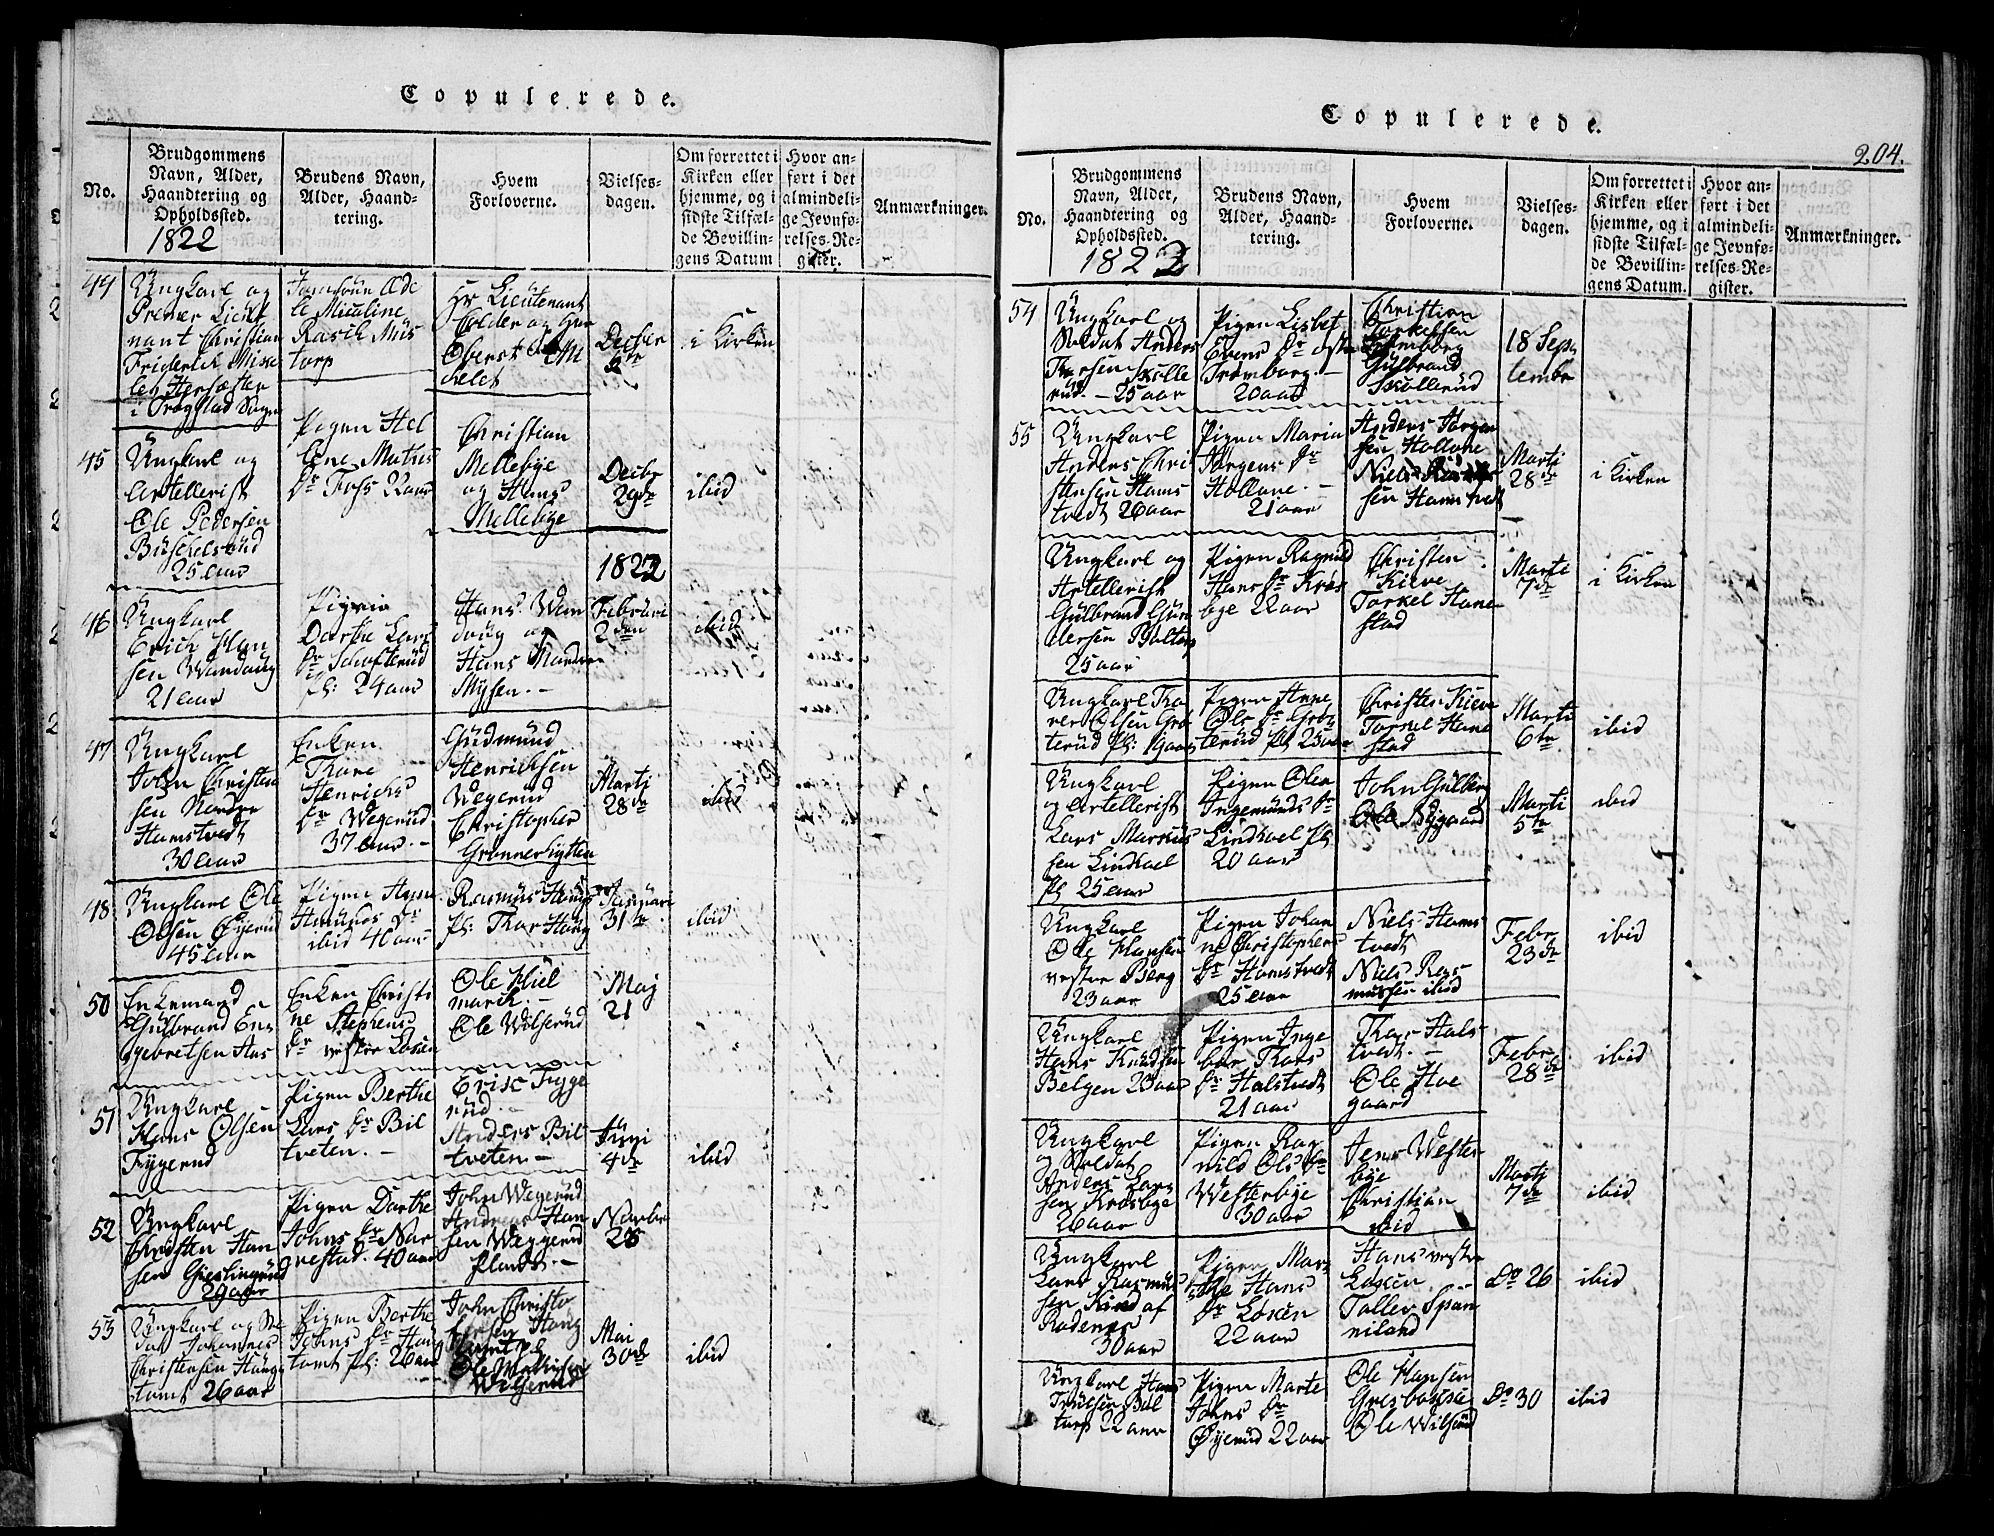 Copulerede.
No.
Brudgommens
Navn, Alder,
Haandtering og
Opholdssted.
1822
Brudens Navn,
Alder, Haand-
tering.
Hvem
Forloverne.
Vielses-
dagen.
Om forrettet i
Kirken eller
hjemme, og i
sidste Tilfæl-
de Bevillin-
gens Datum
Hvor an-
ført i det
almindeli-
ge Jevnfø-
relses-Re-
gister.
Anmærkninger.
44
Ungkarl og
Premier
nant Christian
Friderich
i Trøgstad Sogn
Jomfrue
Hr Lieutenant
og Hr
Oberst
Decber
i Kirken
45
Ungkarl og
Artellerist
Ole Pedersen
25 aar
Pigen Hel
Christian
Mellebye
og Hans
Mellebye
Decbr
29de
ibid
1822
46
Ungkarl
Erich Han
sen
21 aar
Pigen
Dorthe Lars
Dr
Pl: 24 aar
Hans
og
Hans
Mysen. -
Februari
2den
ibid
47
Ungkarl
John Christen
sen Nordre
Hamstvedt
30 aar
Enken
Thore
Henrichs
Dr Wegerud
37 aar. -
Gudmund
Henrichsen
Wegerud
Christopher
Martj
28de
ibid
48
Ungkarl Ole
Olsen Øyerud
45 aar
Pigen
Amunds Dr
ibid 40 aar
Rasmus Haug
Pl: Thor Haug
Januari
31te
ibid
50
Enkemand
Gulbrand En
gebretsen
Enken Christi
ne Stephens
Dr vestre Losen
Ole
march. -
Ole Wilserud
Maj
21
51
Ungkarl
Hans Olsen
Frygerud
Pigen Berthe
Lars Dr Bil
tveten. -
Erik Fryge
rud
Anders Bil
tveten. -
4de
ibid
52
Ungkarl
Christen Han
sen
29 aar
Pigen Dorthe
Johns Dr Nar
vestad. 40 aar
John Wegerud
Andreas Han
sen Weggerud
Plads. -
Novbr
28
53
Ungkarl og
Johannes
Christensen Haug
tomt 26 aar
Pigen Berthe
Johns Dr Haug
tomt Pl: 26 aar
John Christo
Haug
Ole
Wilserud
Mai
30de
ibid
Copulerede.
204.
No.
Brudgommens
Navn, Alder,
Haandtering og
Opholdssted.
1823
Brudens Navn,
Alder, Haand-
tering.
Hvem
Forloverne.
Vielses-
dagen.
Om forrettet i
Kirken eller
hjemme, og i
sidste Tilfæl-
de Bevillin-
gens Datum.
Hvor an-
ført i det
almindeli-
ge Jevnfø-
relses-Re-
gister.
Anmærkninger.
54
Ungkarl og
Soldat Anders
Skolle
rud. - 25 aar
Pigen Lisbet
Evens Dr
Tromborg. -
20 aar
Christian
Torkelsen
Tromborg
Gulbrand
Skollerud
18 Sep
tembr
55
Ungkarl
Anders Chri
stensen Hams
tvedt 26 aar
Pigen Maria
Jørgens Dr
Hollane. -
21 aar
Anders Jørgen
sen Hollane
Niels
sen Hamstvedt
Marti
28de
i Kirken
Ungkarl og
Artellerist
Gulbrand Gun
dersen
25 aar
Pigen Ragnild
Hans Dr Kros
bye 22 aar
Christen
Kieve
Torkel Hane
stad
Marti
7de
i Kirken
Ungkarl Tho
rer Olsen Gro
terud Pl:
Pigen Anne
Ols Dr Gro
terud Pl 25 aar
Christen Kieve
Torkel Hane
stad
Marti
6te
ibid
Ungkarl
og Artellerist
Lars Marcus
sen Lindhoel
Pl 25 aar
Pigen Olea
Ingemunds Dr
Lindhoel Pl
20 aar
John Gulberg
Ole Nygaard
Marti
5te
ibid
Ungkarl
Ole Hansen
vestre Berg
23 aar
Pigen Johan
ne Christophers
Dr Hamstvedt
25 aar
Niels Hams
tvedt
Niels Ras
mussen ibid
Febr
23de
ibid
Ungkarl
Hans Knudsen
Belgen 23 aar
Pigen Inge
bor Thors
Dr Halstvedt
21 aar
Thor Hals
tvedt. -
Ole Hoe
gaard
Febr
28de
ibid
Ungkarl
og Soldat
Anders Lars
sen Krosbye
26 aar
Pigen Rag
nild Ols Dr
Westerbye
30 aar
Jens Wester
bye
Christian
ibid
Martj
7de
ibid
Ungkarl
Lars Rasmus
sen Kind af
Rødenæs
30 aar
Pigen Mar
the Hans
Dr Losen
22 aar
Hans vestre
Losen
Tollev Span
niland
Do 26
ibid
Ungkarl Hans
Truelsen Bil
torp 22 aar
Pigen Marte
Johns Dr
Øyerud 22 aar
Ole Hansen
Gresbogsie
Ole Wilserud
Do 30
ibid